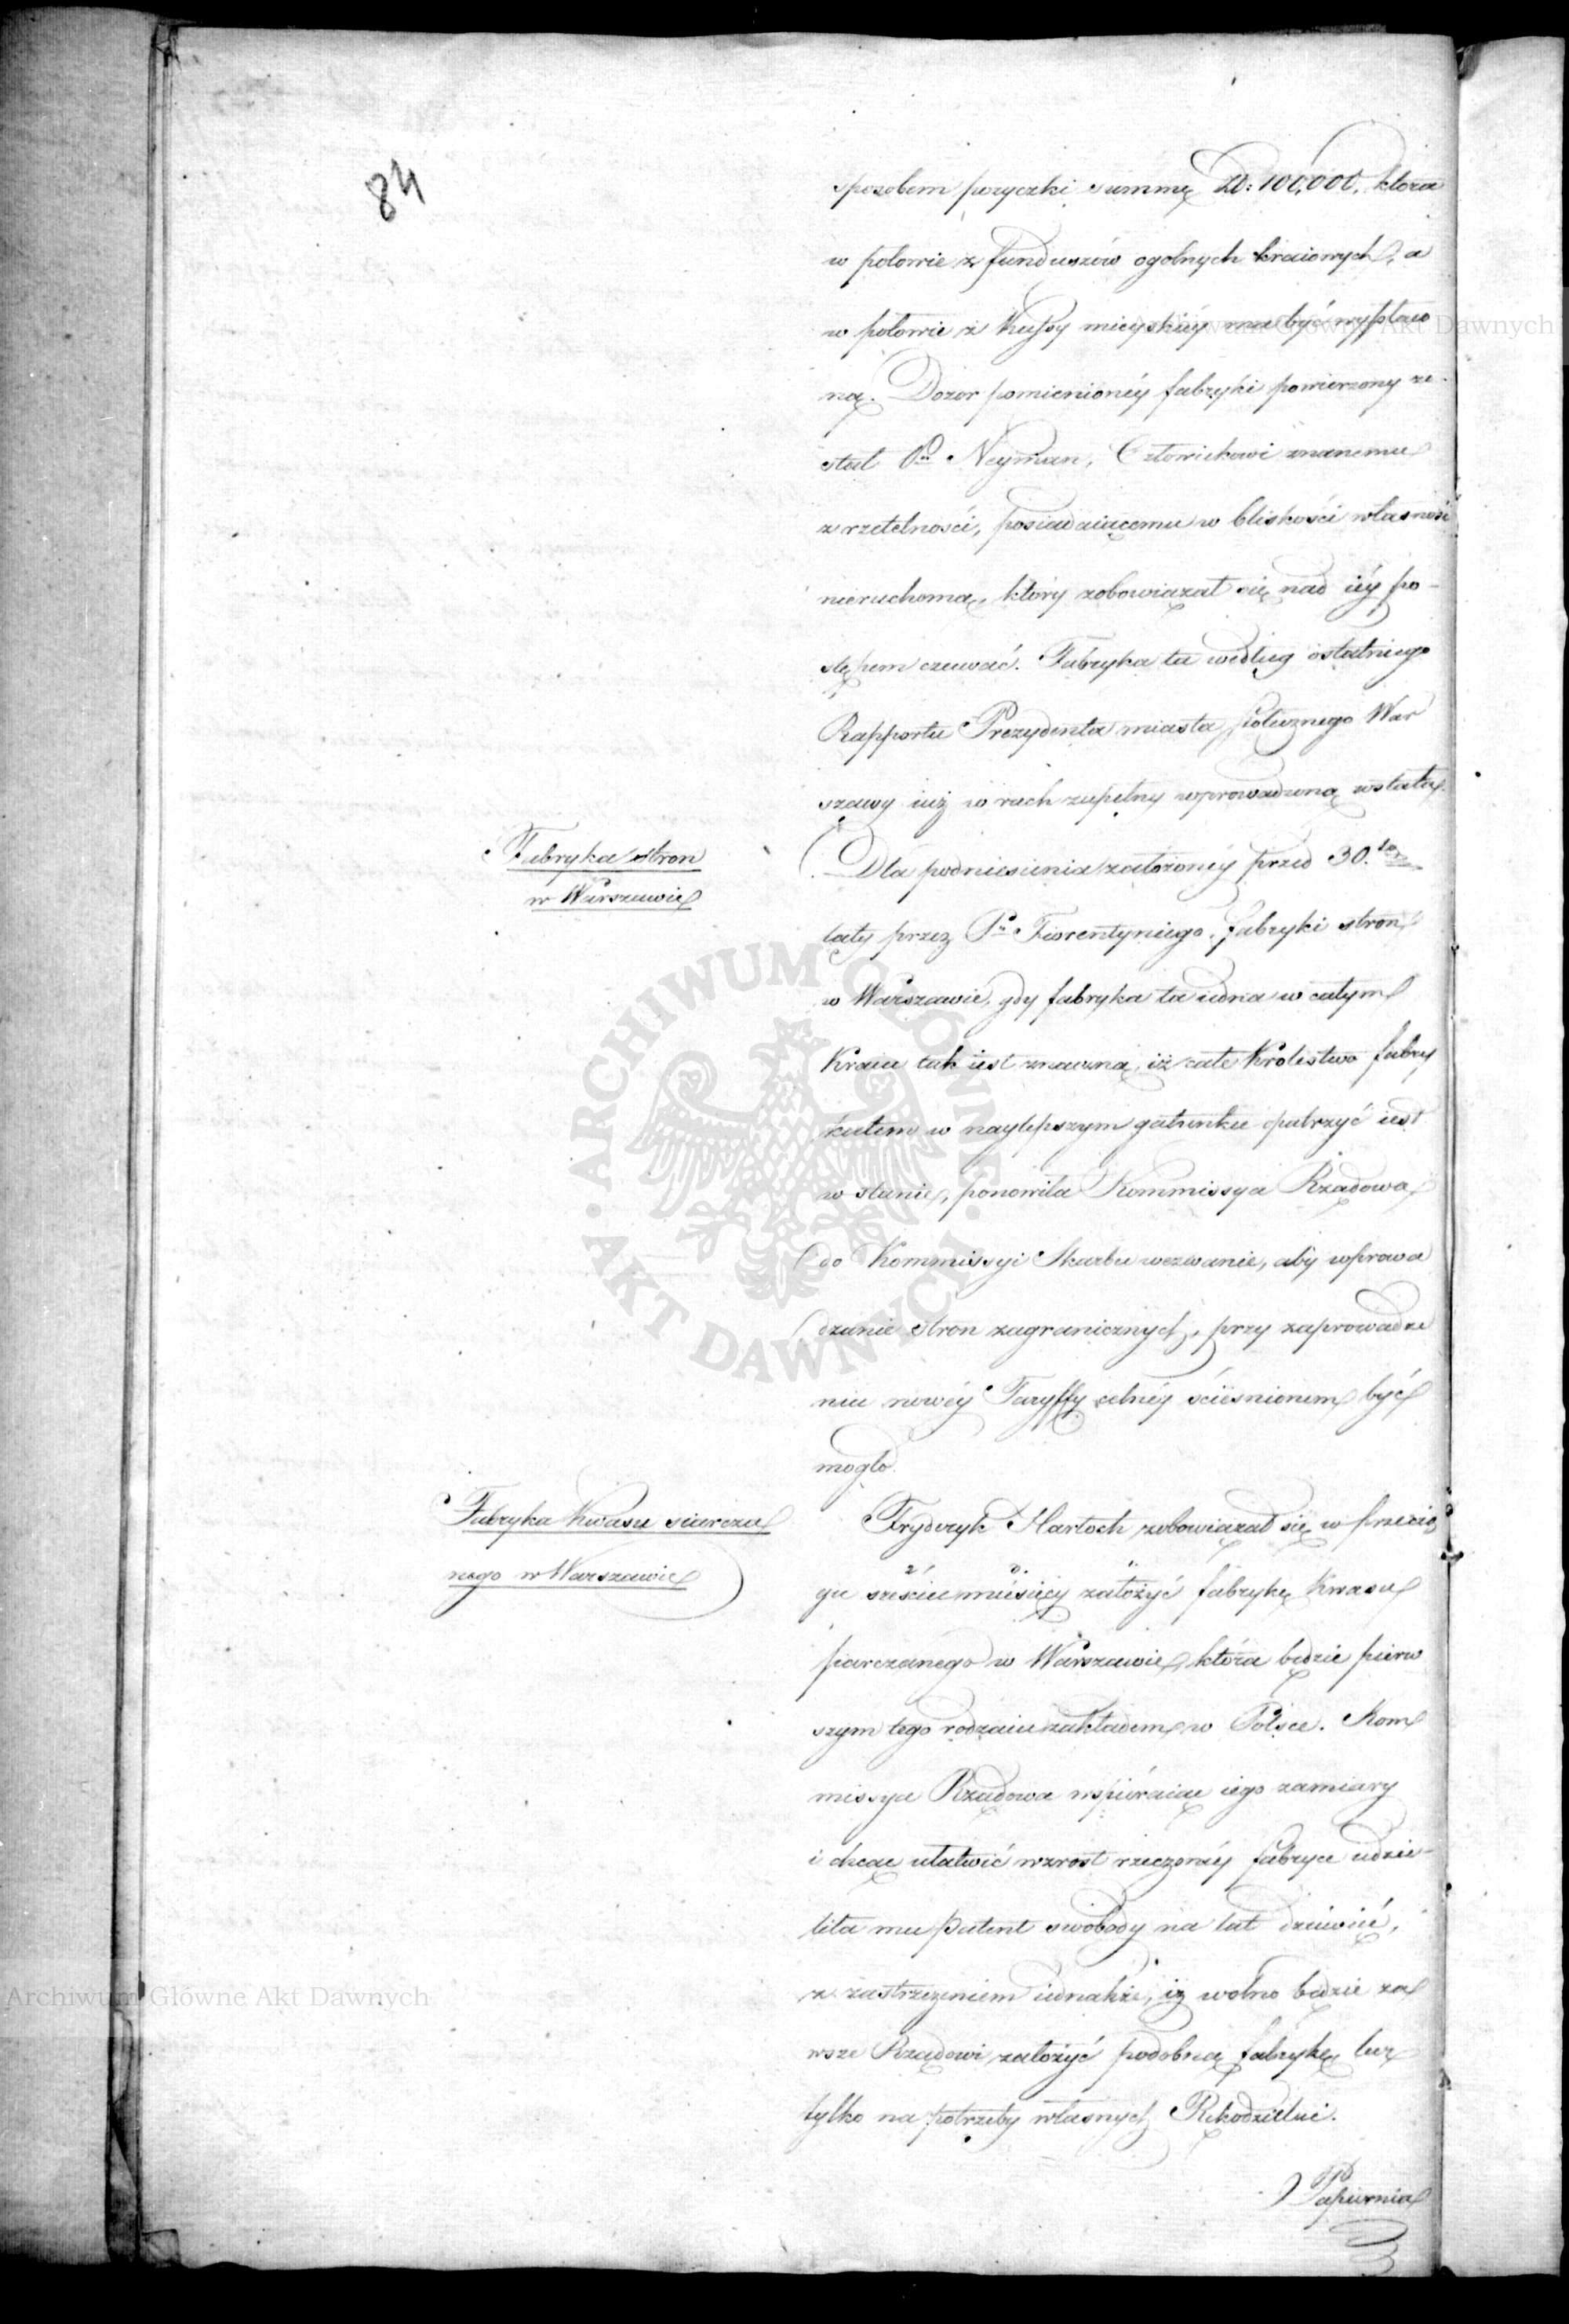 84
sposobem pożyczki summę Zł: 100,000, ktora
w połowie z funduszów ogolnych kraiowych, a
w połowie z Kassy mieyskiéy ma być wypłaco
ną. Dozor pomienionéy fabryki powierzony zo-
stał Pu Neyman, Człowiekowi znanemu
z rzetelności, posiadaiącemu w bliskości własność
nieruchomą, który zobowiązał się nad iéy po-
stępem czuwać. Fabryka ta według ostatniego
Rapportu Prezydenta miasta stołecznego War
szawy iuż w ruch zupełny wprowadzoną została.
Fabryka stron
w Warszawie
Dla podniesienia założonéy przed 30.to
laty przez Pa Fiorentyniego, fabryki stron
w Warszawie, gdy fabryka ta iedna w całym
Kraiu tak iest znaczną, iż całe Krolestwo fabry
katem w naylepszym gatunku opatrzyć iest
w stanie, ponowiła Kommissya Rządowa
do Kommissyi Skarbu wezwanie, aby wprowa
dzanie stron zagranicznych, przy zaprowadze
niu nowéy Taryffy celnéy ścieśnionem być
mogło.
Fabryka Kwasu siarcza
nego w Warszawie
Fryderyk Hartoch zobowiązał się w przecią
gu sześciu miesięcy założyć fabrykę Kwasu
siarczanego w Warszawie, która będzie pierw
szym tego rodzaiu zakładem w Polsce. Kom
missya Rządowa wspiéraiąc iego zamiary
i chcąc ułatwić wzrost rzeczonéy fabryce udzie-
liła mu patent swobody na lat dziewięć,
z zastrzeżeniem iednakże, iż wolno będzie za
wsze Rządowi założyć podobną fabrykę lecz
tylko na potrzeby własnych Rękodzielni.
Papiernia
Archiwum Główne Akt Dawnych
Archiwum Główne Akt Dawnych
ARCHIWUM GŁÓWNE AKT DAWNYCH